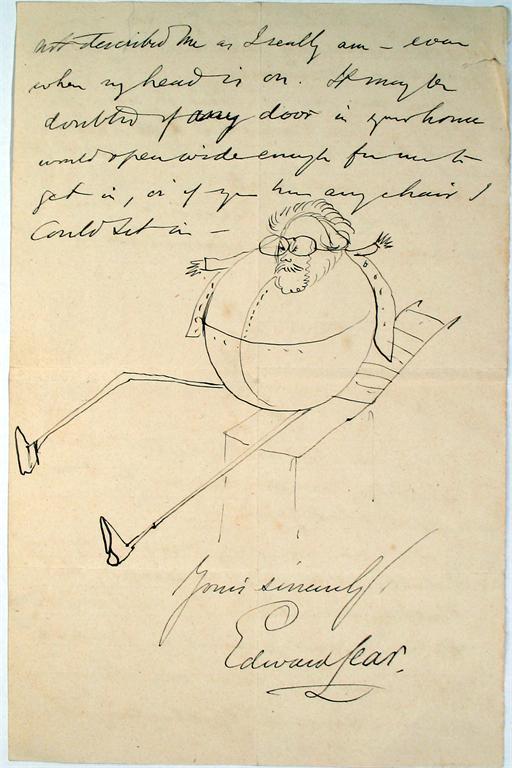 not described me as I really am – even
when my head is on. It may be
doubted if any door in your house
would open wide enough for me to
get in, or if you have any chair I
could sit in –
Yours sincerely,
Edward Lear.